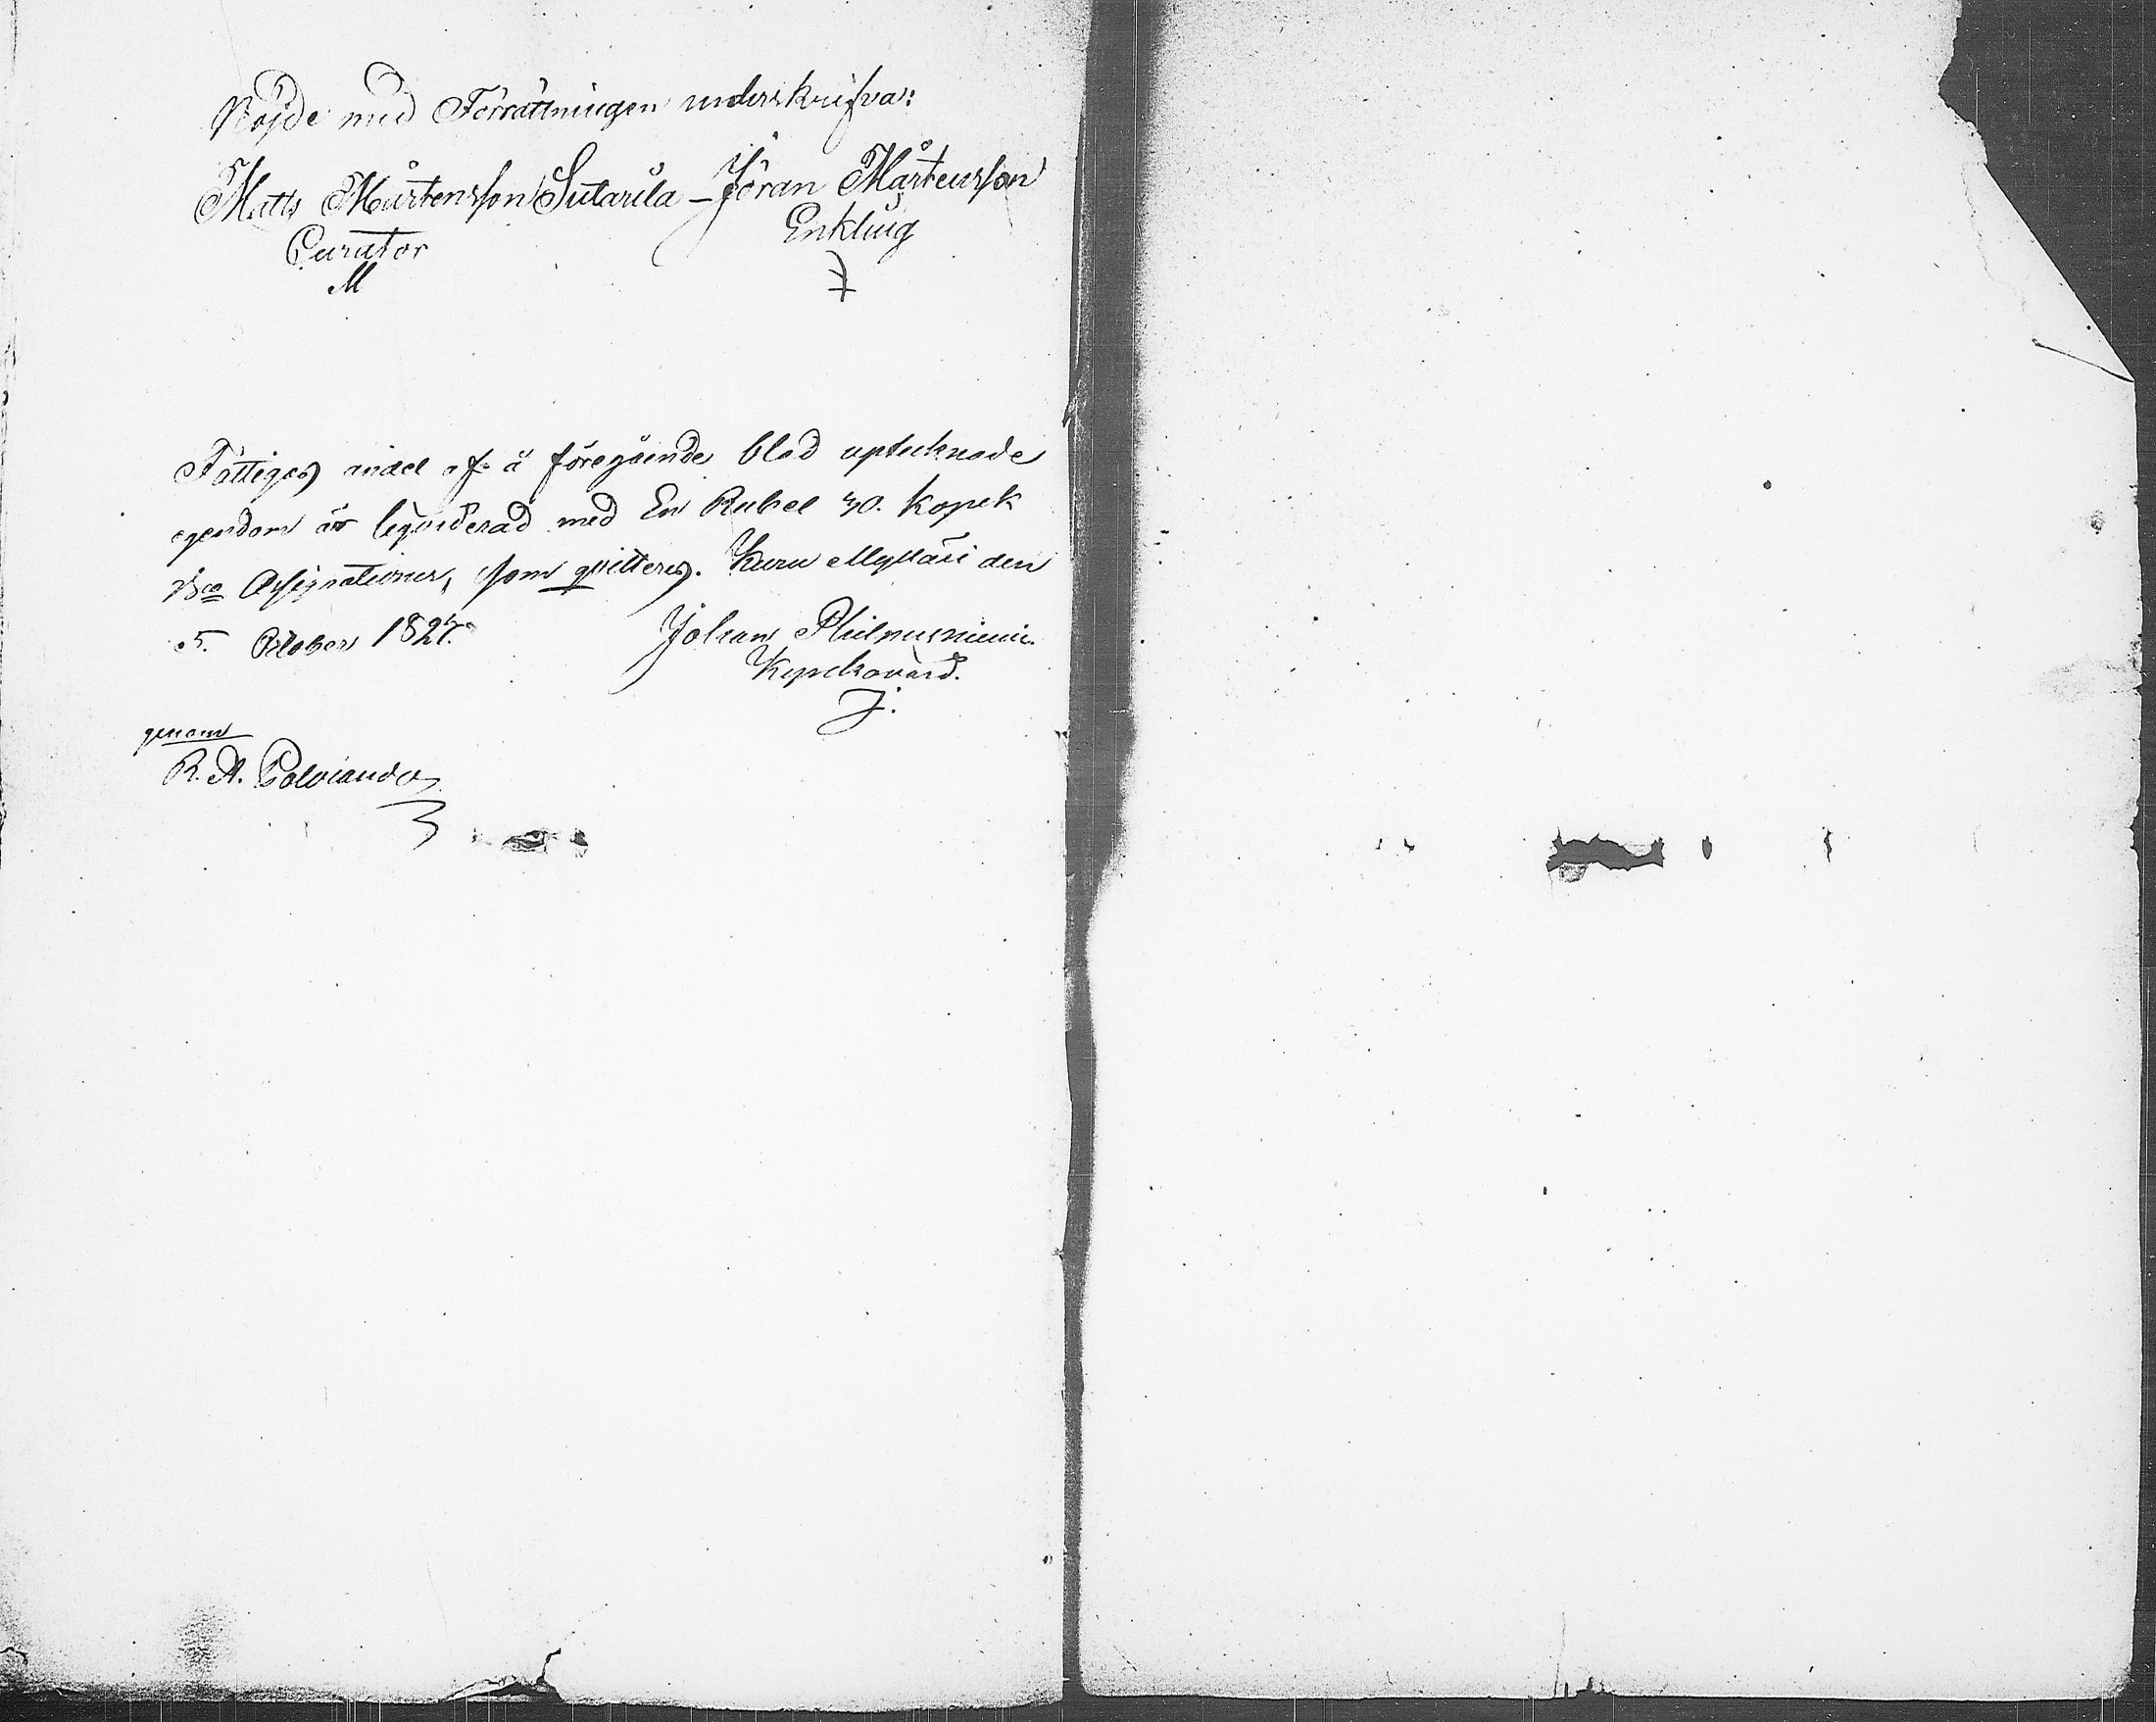 Nöjde med Förrättningen underskrifva:
Matts Mårtensson Sutarila – Jöran Mårtensson
Curator Enkling
M
Fattiges andel af å föregående blad uptecknade
egendom är liqviderad med En Rubel 40. kopek
Bco Assignationer, som qvitteras. Kuru Mylläri den
5. October 1827. Johan Philpusniemi.
Kyrckovärd.
J.
genom
R. A. Polviander